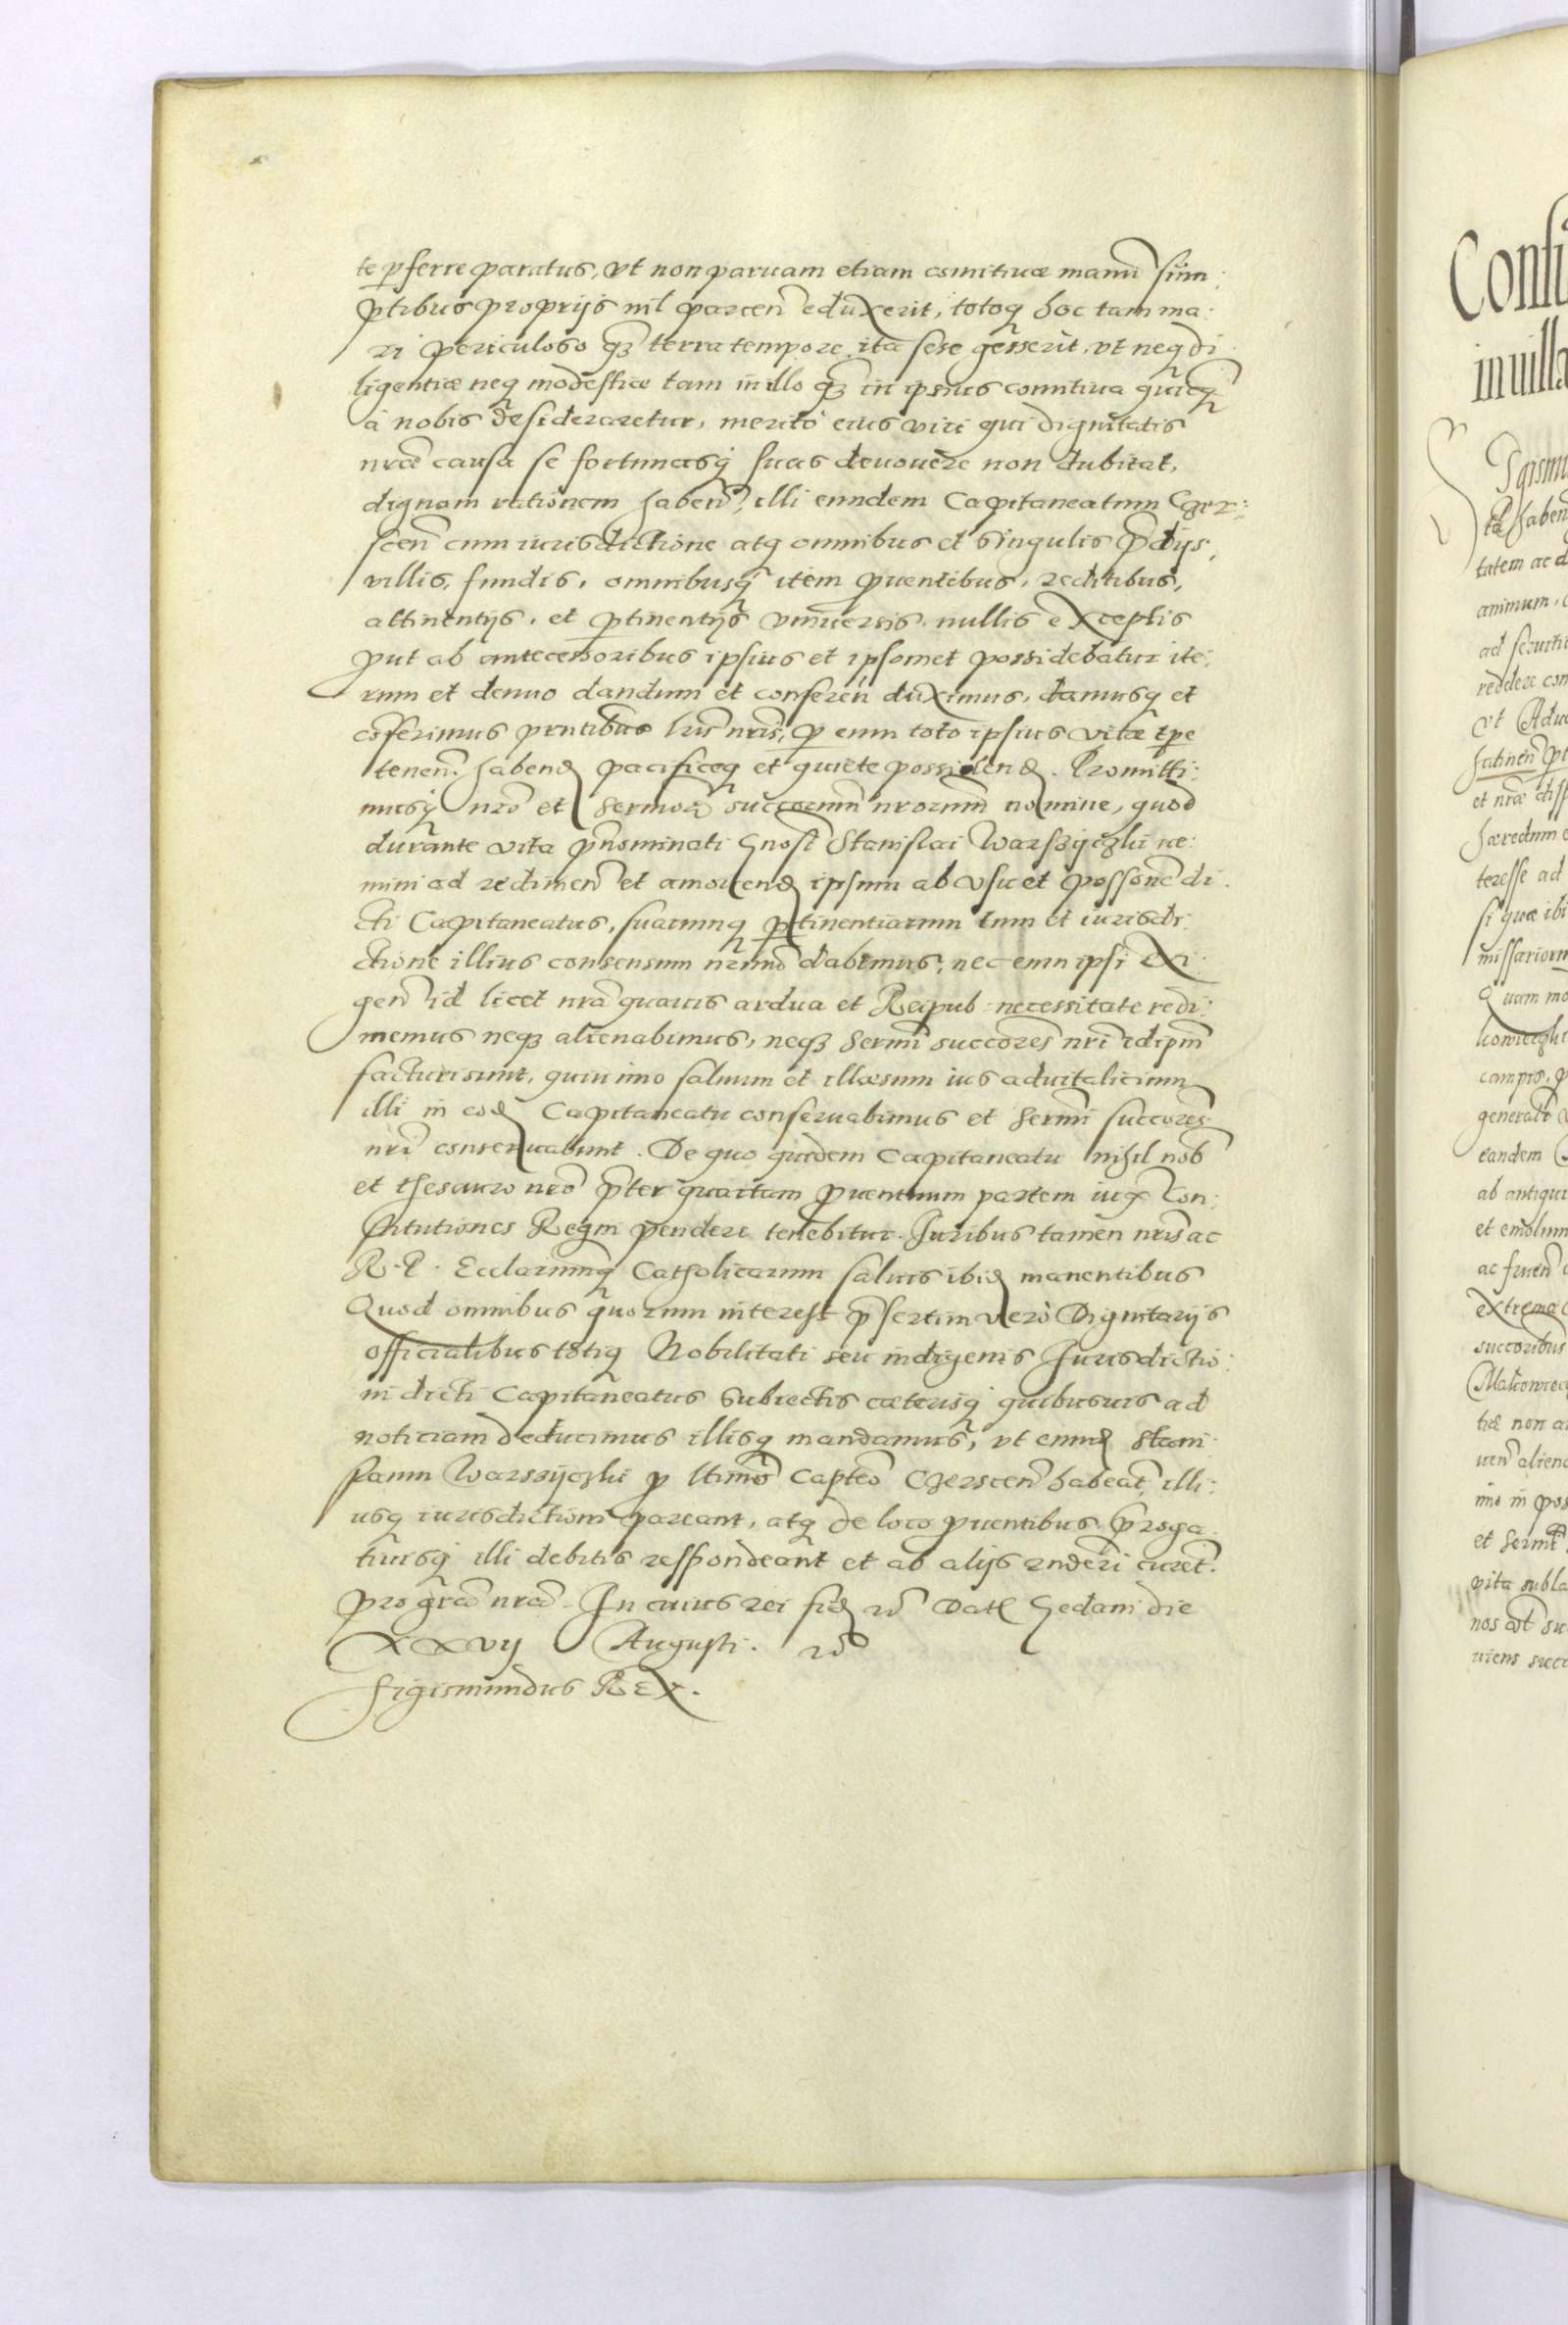 te p̱ferre paratus, vt non paruam etiam comitiuæ manũ sum:
ptibus proprijs nil parcen̄ eduxerit, totoq̃ hoc tam ma:
ri periculoso q̃ꝫ terra tempore ita sese gesserit, vt neq̃ di
ligentiæ neq̃ modestiæ tam in illo q̃ꝫ in ipsius comitiua quicq̃
à nobis desideraretur, merito eius viri qui dignitatis
nr̃æ causa se fortunasq̃ suas deuouere non dubitat,
dignam rationem haben̄, illi eundem Capitaneatum Czer:
scen̄ cum iurisdictione atq̃ omnibus et singulis p̃dijs,
villis, fundis, omnibusq̃ item ꝓuentibus, reditibus,
attinentijs, et p̱tinentijs vniuersis, nullis exceptis
ꝓut ab antecessoribus ipsius et ipsomet possidebatur ite:
rum et denuo dandum et conferen̄ duximus, damusq̃ et
cõferimus pn̄tibus lr̃is nr̃is, p̱ eum toto ipsius vitæ tp̃e
tenen̄. habenđ pacificeq̃ et quiete possidenđ. Promitti:
musq̃ nr̃o et Sermoꝝ succorum nr̃orum nomine, quod
durante vita p̃nominati Gnosi Stanislai Warszijczki ne:
mini ad redimen̄ et amouenđ ipsum ab vsu et possone di
cti Capitaneatus, suarumq̃ p̱tinentiarum tum et iurisdi:
ctione illius consensum nr̃um dabimus, nec eum ipsi exi:
gen̄ id licet nr̃a quauis ardua et Reipub: necessitate redi:
memus neqꝫ alienabimus, neqꝫ Sermi succores nr̃i idipm̃
facturi sunt, quin imo saluum et illæsum ius aduitalicium
illi in eođ Capitaneatu conseruabimus et Sermi succores
nr̃i conseruabunt. De quo quidem Capitaneatu nihil nob̃
et thesauro nr̃o p̃ter quartam ꝓuentuum partem iux̃ Con:
stitutiones Regni pendere tenebitur. Juribus tamen nr̃is ac
R. P. Ecclarumq̃ Catholicarum saluis ibiđ manentibus
Quod omnibus quorum interest p̃sertim vero Dignitarijs
officialibus totiq̃ Nobilitati seu indigenis Jurisdictio:
ni dicti Capitaneatus Subiectis cæterisq̃ quibusuis ad
noticiam deducimus illisq̃ mandamus, vt eunđ Stani
slaum Warssijczki ꝓ ltimo Capteo Czerscen̄ habeat, illi:
usq̃ iurisdictioni pareant, atq̃ de loco ꝓuentibus p̃roga
tiuisq̃ illi debitis respondeant et ab alijs rñderi curet.
pro gr̃a nr̃a. In cuius rei fiđ rc̃ Datt Gedani die
XXVij Augusti. rc̃
Sigismundus Rex.